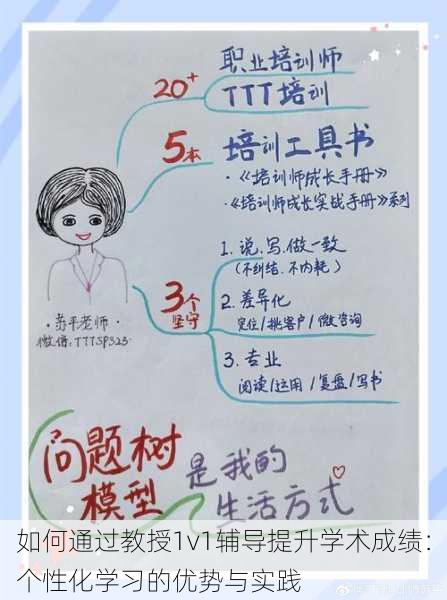 职业培训师
20+
TTT培训
5本
培训工具书
·《培训师成长手册》
·《培训师成长实战手册》系列
3个
坚守
1.说.写.做一致
(不纠结.不内耗)
2.差异化
定位/挑客户/微咨询
3.专业
阅读/运用/复盘/写书
·苏平老师·
微信:TTTSP323
问题树
模型
是我的
生活方式
如何通过教授1v1辅导提升学术成绩:
个性化学习的优势与实践